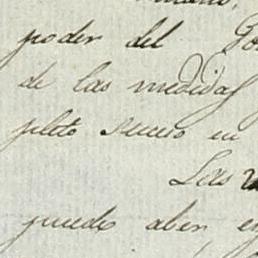 poder del
de las medidas
pleto suceso en
Las
puede aber